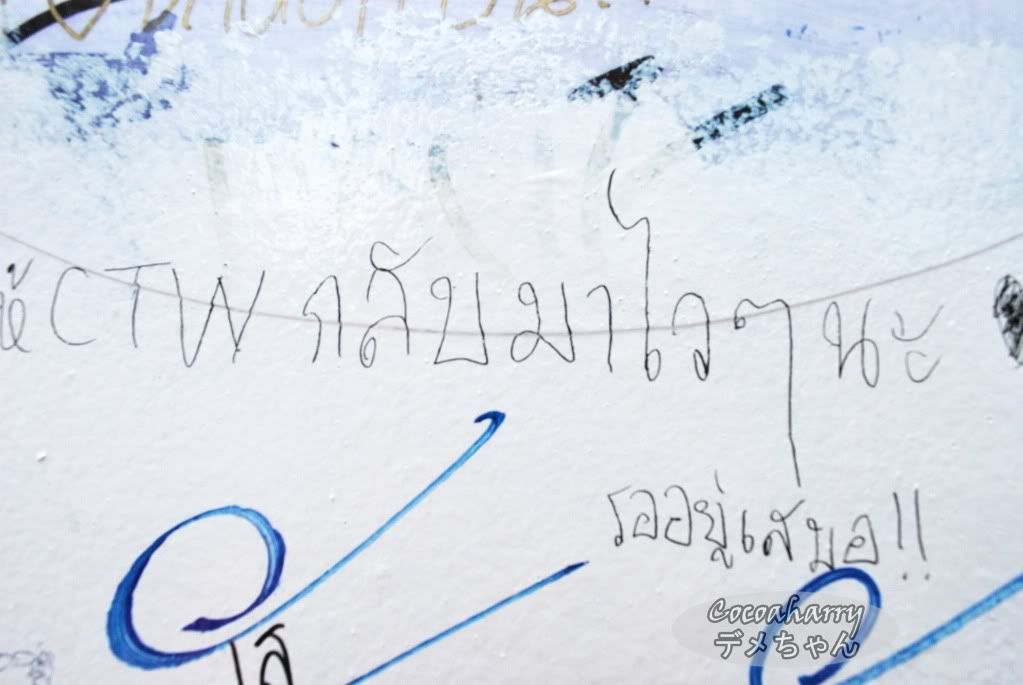 ห้ CTW กลับมาไวๆ นะ
รออยู่เสมอ!!
Cocoaharry
デメちゃん